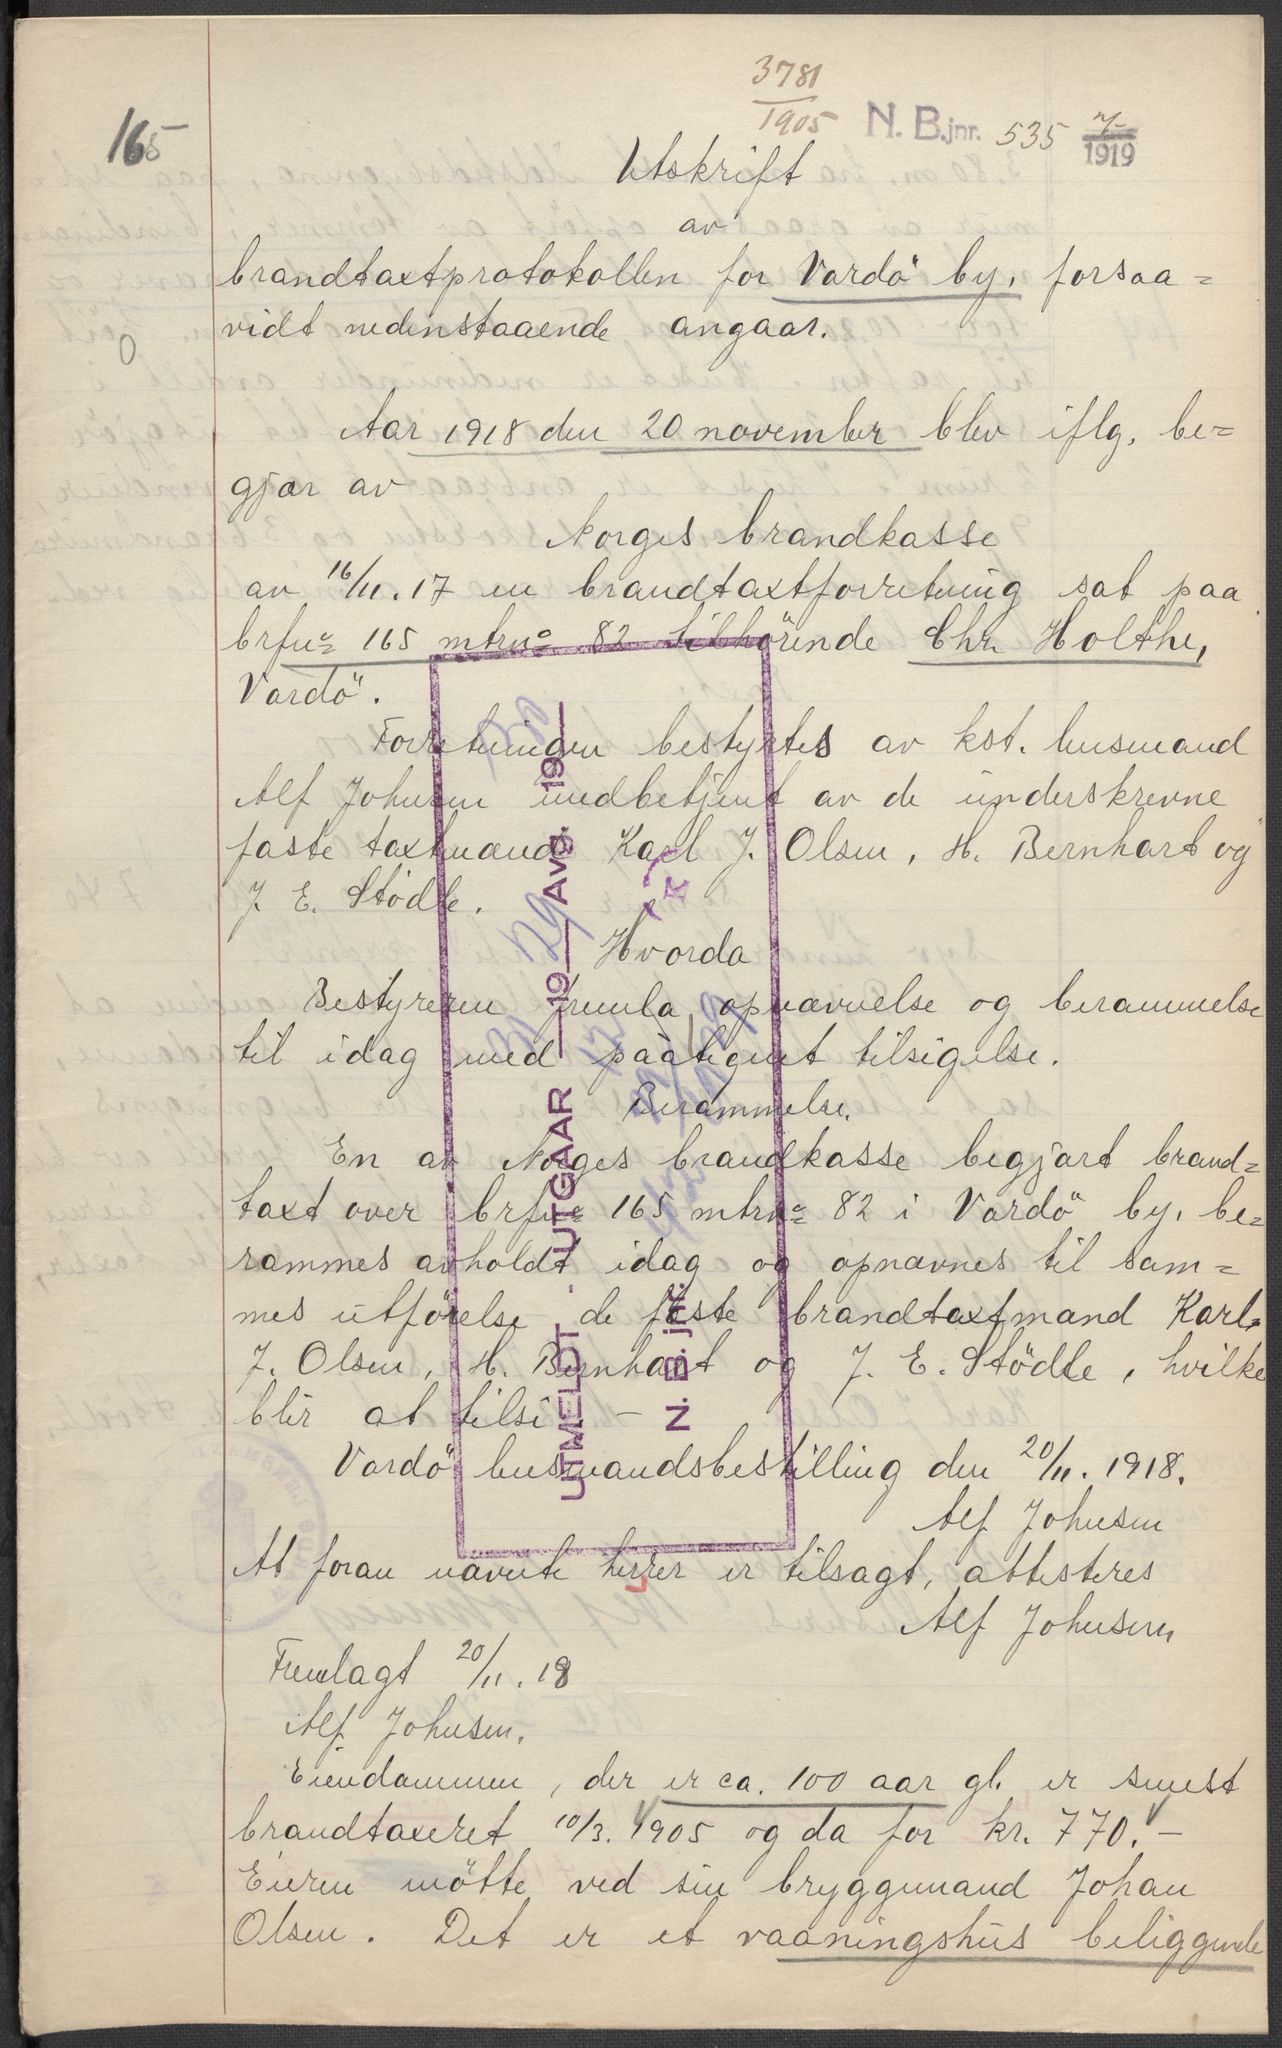 3781
1905
N. B. jnr. 535 7/1919
165
Utskrift
av
brandtaxtprotokollen for Vardö by, forsaa=
vidt nedenstaaende angaar.
0
Aar 1918 den 20 november blev iflg. be=
gjær av
Norges brandkasse
av 16/11. 17 en brandtaxtforretning sat paa
brfno 165 mtrno 82 tilhörende Chr. Holthe,
Vardö.
Forretningen bestyrtes av kst. lensmand
Alf Johnsen medbetjent av de underskrevne
faste taxtmænd Karl J. Olsen, H. Bernhart og
J. E. Stödle.
Hvorda
Bestyreren fremla opnævnelse og berammelse
til idag med paategnet tilsigelse.
Berammelse.
En av Norges brandkasse begjært brand=
taxt over brfno 165 mtrno 82 i Vardö by, be=
rammes avholdt idag og opnævnes til sam=
mes utförelse de faste brandtaxtmænd Karl
J. Olsen, H. Bernhart og J. E. Stödle, hvilke
blir at tilsi —
Vardö lensmandsbestilling den 20/11. 1918.
Alf Johnsen
At foran nævnte herrer er tilsagt, attesteres
Alf Johnsen
Fremlagt 20/11. 18
Alf Johnsen.
Eiendommen, der er ca. 100 aar gl. er senest
brandtaxeret 10/3. 1905 og da for kr. 770.—
Eieren mötte ved sin bryggemand Johan
Olsen. Det er et vaaningshus beliggende
UTMELDT. UTGAAR 19 AVG. 19
N. B. jnr.